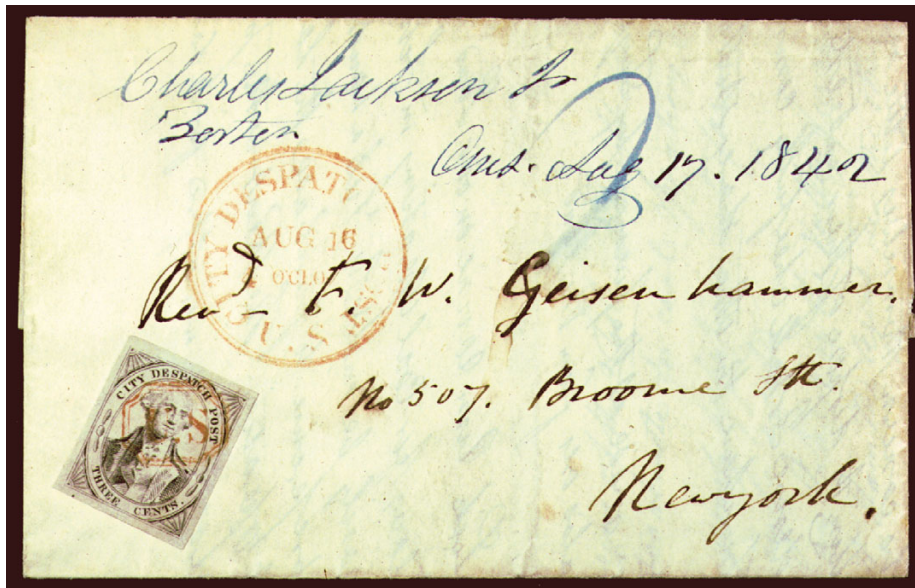 Charles Jackson Jr
Boston
Ans. Aug 17. 1842
2
CITY DESPATC
AUG 16
O'CLO
U.S
Revd F. W. Geisenhammer.
No 507. Broome Stt.
Newyork.
CITY DESPATCH POST
U.S
THREE CENTS